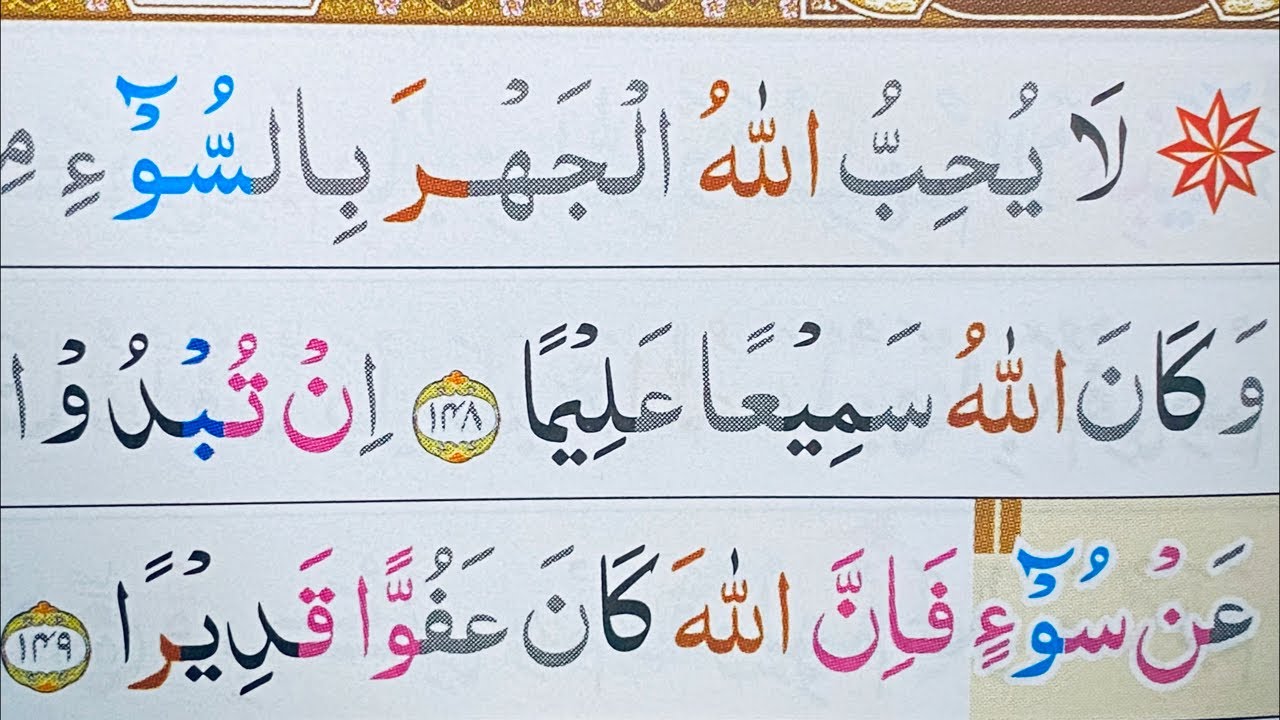 لَا يُحِبُّ اللّٰهُ الْجَهْرَ بِالسُّوْٓءِ
وَكَانَ اللّٰهُ سَمِيْعًا عَلِيْمًا ﴿۱۴۸﴾ اِنْ تُبْدُوْا
عَنْ سُوْٓءٍ فَاِنَّ اللّٰهَ كَانَ عَفُوًّا قَدِيْرًا ﴿۱۴۹﴾